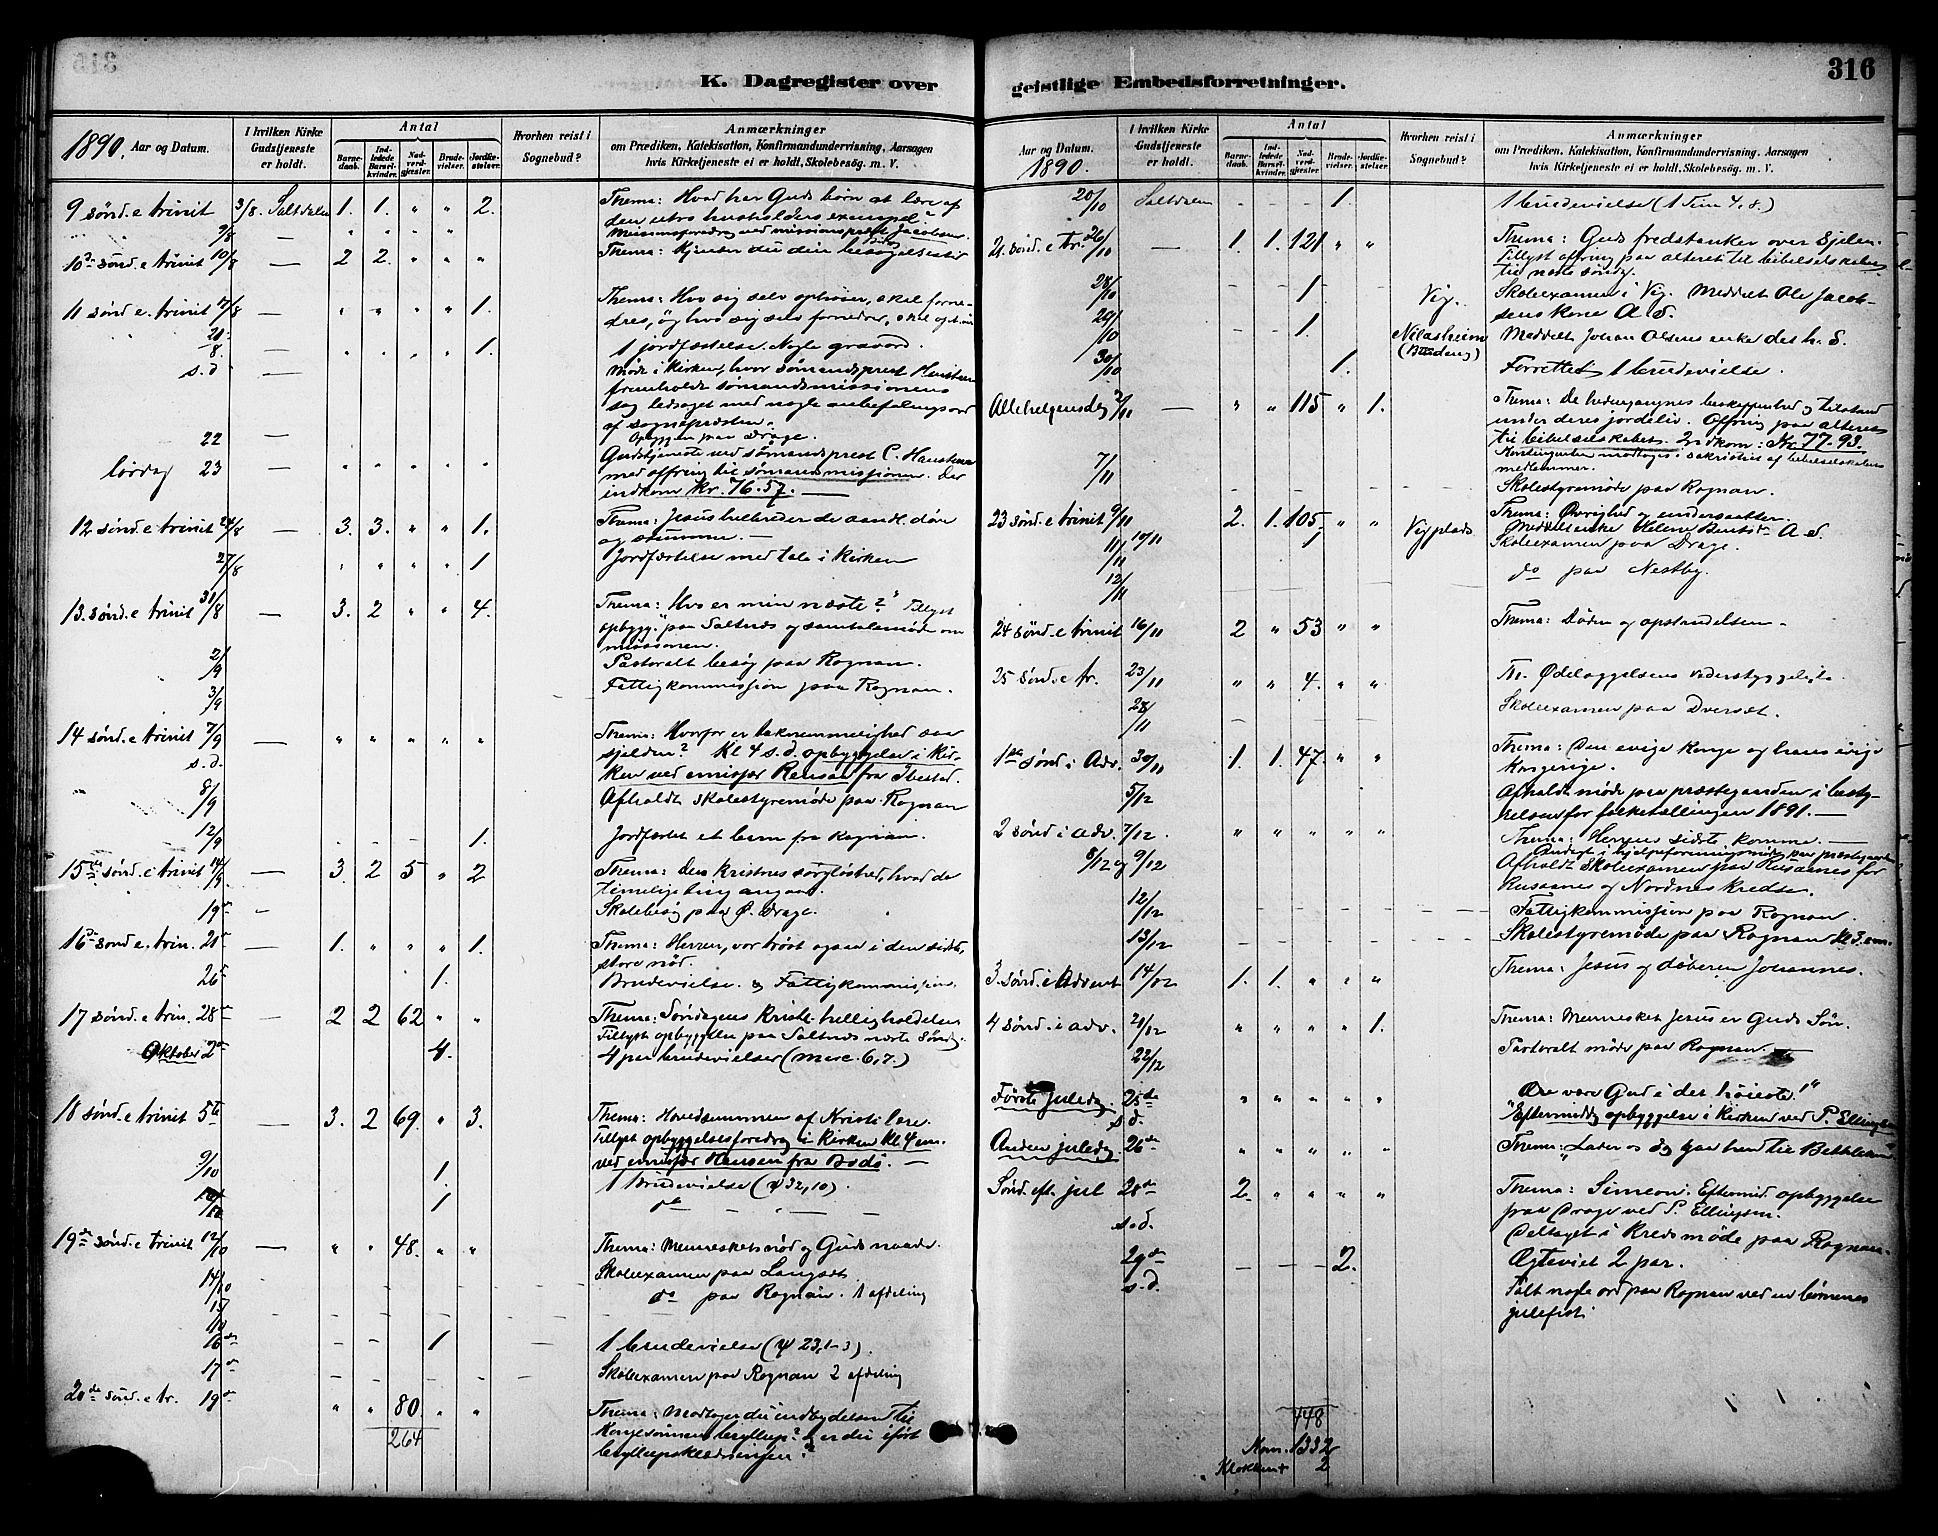 K. Dagregister over
1890. Aar og Datum.
I hvilken Kirke Gudstjeneste er holdt.
Antal
Barnedaab.
Indledede Barselkvinder.
Nadverdgjæster.
Brudevielser.
Jordfæstelser.
Hvorhen reist i Sognebud?
Anmærkninger
om Prædiken, Katekisation, Konfirmandundervisning, Aarsagen
hvis Kirketjeneste ei er holdt, Skolebesøg. m. V.
9 sønd. e trinit 3/8. Saltdalen 1. 1. " " 2. Thema: Hvad har Guds børn at lære af
den utro husholders exempel?
9/8 — " " " " Missionsforedrag ved missionsprest Jacobsen.
10de sønd. e trinit 10/8 — 2 2. " " " Thema: Kjender du din besøgelsestid
11 sønd. e. trinit 17/8 — " " " " 1. Thema: Hvo sig selv ophøier, skal forne-
dres, og hvo sig selv fornedrer, skal ophøies
20/8. — " " " " 1. 1 jordfæstelse. Nogle gravord.
s.d — Møde i Kirken, hvor sømandsprest Hansteen
fremholdt sømandsmissionens
sag ledsaget med nogle anbefalingsord
af sognepræsten.
22 — Opbyggen paa Drage.
lørdag 23 — " " " " " Gudstjeneste ved sømandsprest C. Hansteen
med offring til sømandsmissionen. Der
indkom kr. 76.57. —
12 sønd. e trinit 24/8 — 3. 3. " " 1. Thema: Jesus helbreder de aandl. døve
og stumme. —
27/8 " " " " 1 Jordfæstelse med tale i Kirken
13. sønd. e trinit 31/8 — 3. 2 " " 4. Thema: Hvo er min næste? Tillyst
opbygg. paa Saltnes og samtalemøde om
missionen.
2/9 Pastoralt besøg paa Rognan.
3/9 Fattigkommission paa Rognan.
14 sønd. e trinit 7/9 — " " " " " Thema: Hvorfor er taknemmelighed saa
s.d. sjelden? Kl 4 s.d. opbyggelse i Kir-
ken ved emissær Hansen fra Ibestad.
8/9 Afholdt skolestyremøde paa Rognan
12/9 1. Jordfæstet et barn fra Rognan.
15de sønd. e trinit 14/9 — 3. 2 5 " 2 Thema: Den kristnes sørgløshed, hvad de
timelige ting angaar.
19de Skolebesøg paa Ø. Drage.
16de sønd e. trin. 21de — 1. " " " 1. Thema: Herren, vor trøst ogsaa i den sidste,
store nød.
26de 1. Brudevielse. og Fattigkommission.
17 sønd. e trin. 28de — 2 2 62 " " Thema: Søndagens Kristl. helligholdelse
Tillyst opbyggelse paa Saltnes næste Søndag.
Oktober 2de 4. 4 par brudevielser (Marc. 6,7.)
18 sønd. e trinit 5te — 3. 2 69. " 3. Thema: Hovedsummen af Kristi lære.
Tillyst opbyggelsesforedrag i Kirken Kl 4 em.
ved emissær Hansen fra Bodø. —
9/10 1. 1 Brudevielse (ψ 32,10).
1 do
19de sønd. e trinit 12/10 — " " 48. " " Thema: Menneskets nød og Guds naade.
14/10 Skoleexamen paa Langset.
15/10 do paa Rognan. 1 afdeling
16de 1 1 brudevielse (ψ 23,1-3).
17de Skoleexamen paa Rognan 2 afdeling
20de sønd. e tr. 19de " " 80. " " Thema: Modtager du indbydelsen til
264 Kongesønnens bryllup? og er du iført
bryllupsklædningen?
geistlige Embedsforretninger.
316
Aar og Datum.
1890.
I hvilken Kirke Gudstjeneste er holdt.
Antal
Barnedaab.
Indledede Barselkvinder.
Nadverdgjæster.
Brudevielser.
Jordfæstelser.
Hvorhen reist i Sognebud?
Anmærkninger
om Prædiken, Katekisation, Konfirmandundervisning. Aarsagen
hvis Kirketjeneste ei er holdt. Skolebesøg. m. V.
20/10 Saltdalen - - - 1. 1 brudevielse (1 Tim 4,8.)
21. sønd. e tr. 26/10 — 1. 1. 121 " " Thema: Guds fredstanker over Sjelen.
Tillyst offring paa alteret til bibelselskabet
til næste søndag.
28/10 - - 1. Vig. Skoleexamen i Vig. Meddelt Ole Jacob-
sens kone A. S.
29/10 - - 1. Nilasheim (Bunden) Meddelt Johan Olsens enke det h. S.
30/10 1. Forrettet 1 brudevielse.
Allehelgensdag 2/11 — " " 115 " 1. Thema: De hedengangnes beskaffenhed og tilstand
under deres jordeliv. Offring paa alteret
til bibelselskabet. Indkom: Kr. 77.93.
Kontingenten modtages i sakristiet af bibelselskabets
medlemmer.
7/11 Skolestyremøde paa Rognan.
23 sønd. e trinit 9/11 2. 1. 105 " " Thema: Øvrighed og undersaatter.
10/11 1 Vigplads Meddelt enke Helene Berntsd. A. S.
11/11 Skoleexamen paa Drage.
12/11 do paa Nestby.
24 sønd. e trinit 16/11 2 " 53 " " Thema: Døden og opstandelsen.
25 sønd. e tr. 23/11 " " 4. " " Th. Ødelæggelsens vederstyggelighed.
28/11 Skoleexamen paa Dverset.
1ste sønd i Adv. 30/11 1. 1. 47. " " Thema: Den evige konge og hans evige
Kongerige.
5/12 Afholdt møde paa præstegaarden i besty-
relsen for folketællingen 1891. —
2 sønd i adv. 7/12. " " " " " Thema: Herrens sidste komme. —
8/12 og 9/12 Afholdt Skoleexamen paa Rusaanes for
Rusaanes og Nordnes Kredse.
12/12 Fattigkommission paa Rognan.
13/12 Skolestyremøde paa Rognan Kl 3. em.
3. sønd. i Advent 14/12 1. 1. " " " Thema: Jesus og døberen Johannes.
4 sønd. i adv. 21/12 " " " " 1. Thema: Mennesket Jesus er Guds Søn.
22/12 Pastoralt møde paa Rognan. —
Første juledag. 25de " " " " " Ære være Gud i det høieste!"
s.d. Eftermiddag opbyggelse i Kirken ved P. Ellingsen
Anden juledag 26de " " " " " Thema: "Lader os dog gaa hen til Bethlehem"
Sønd. eft. jul 28de 2. " " " " Thema: Simeon. Eftermid. opbyggelse
paa Drage ved P. Ellingsen.
s.d. Deltaget i Kredsmøde paa Rognan.
29de — — — 2. Ægteviet 2 par.
s.d. Talt nogle ord paa Rognan ved en børnenes
julefest.
448
1332
Klokkeren 2